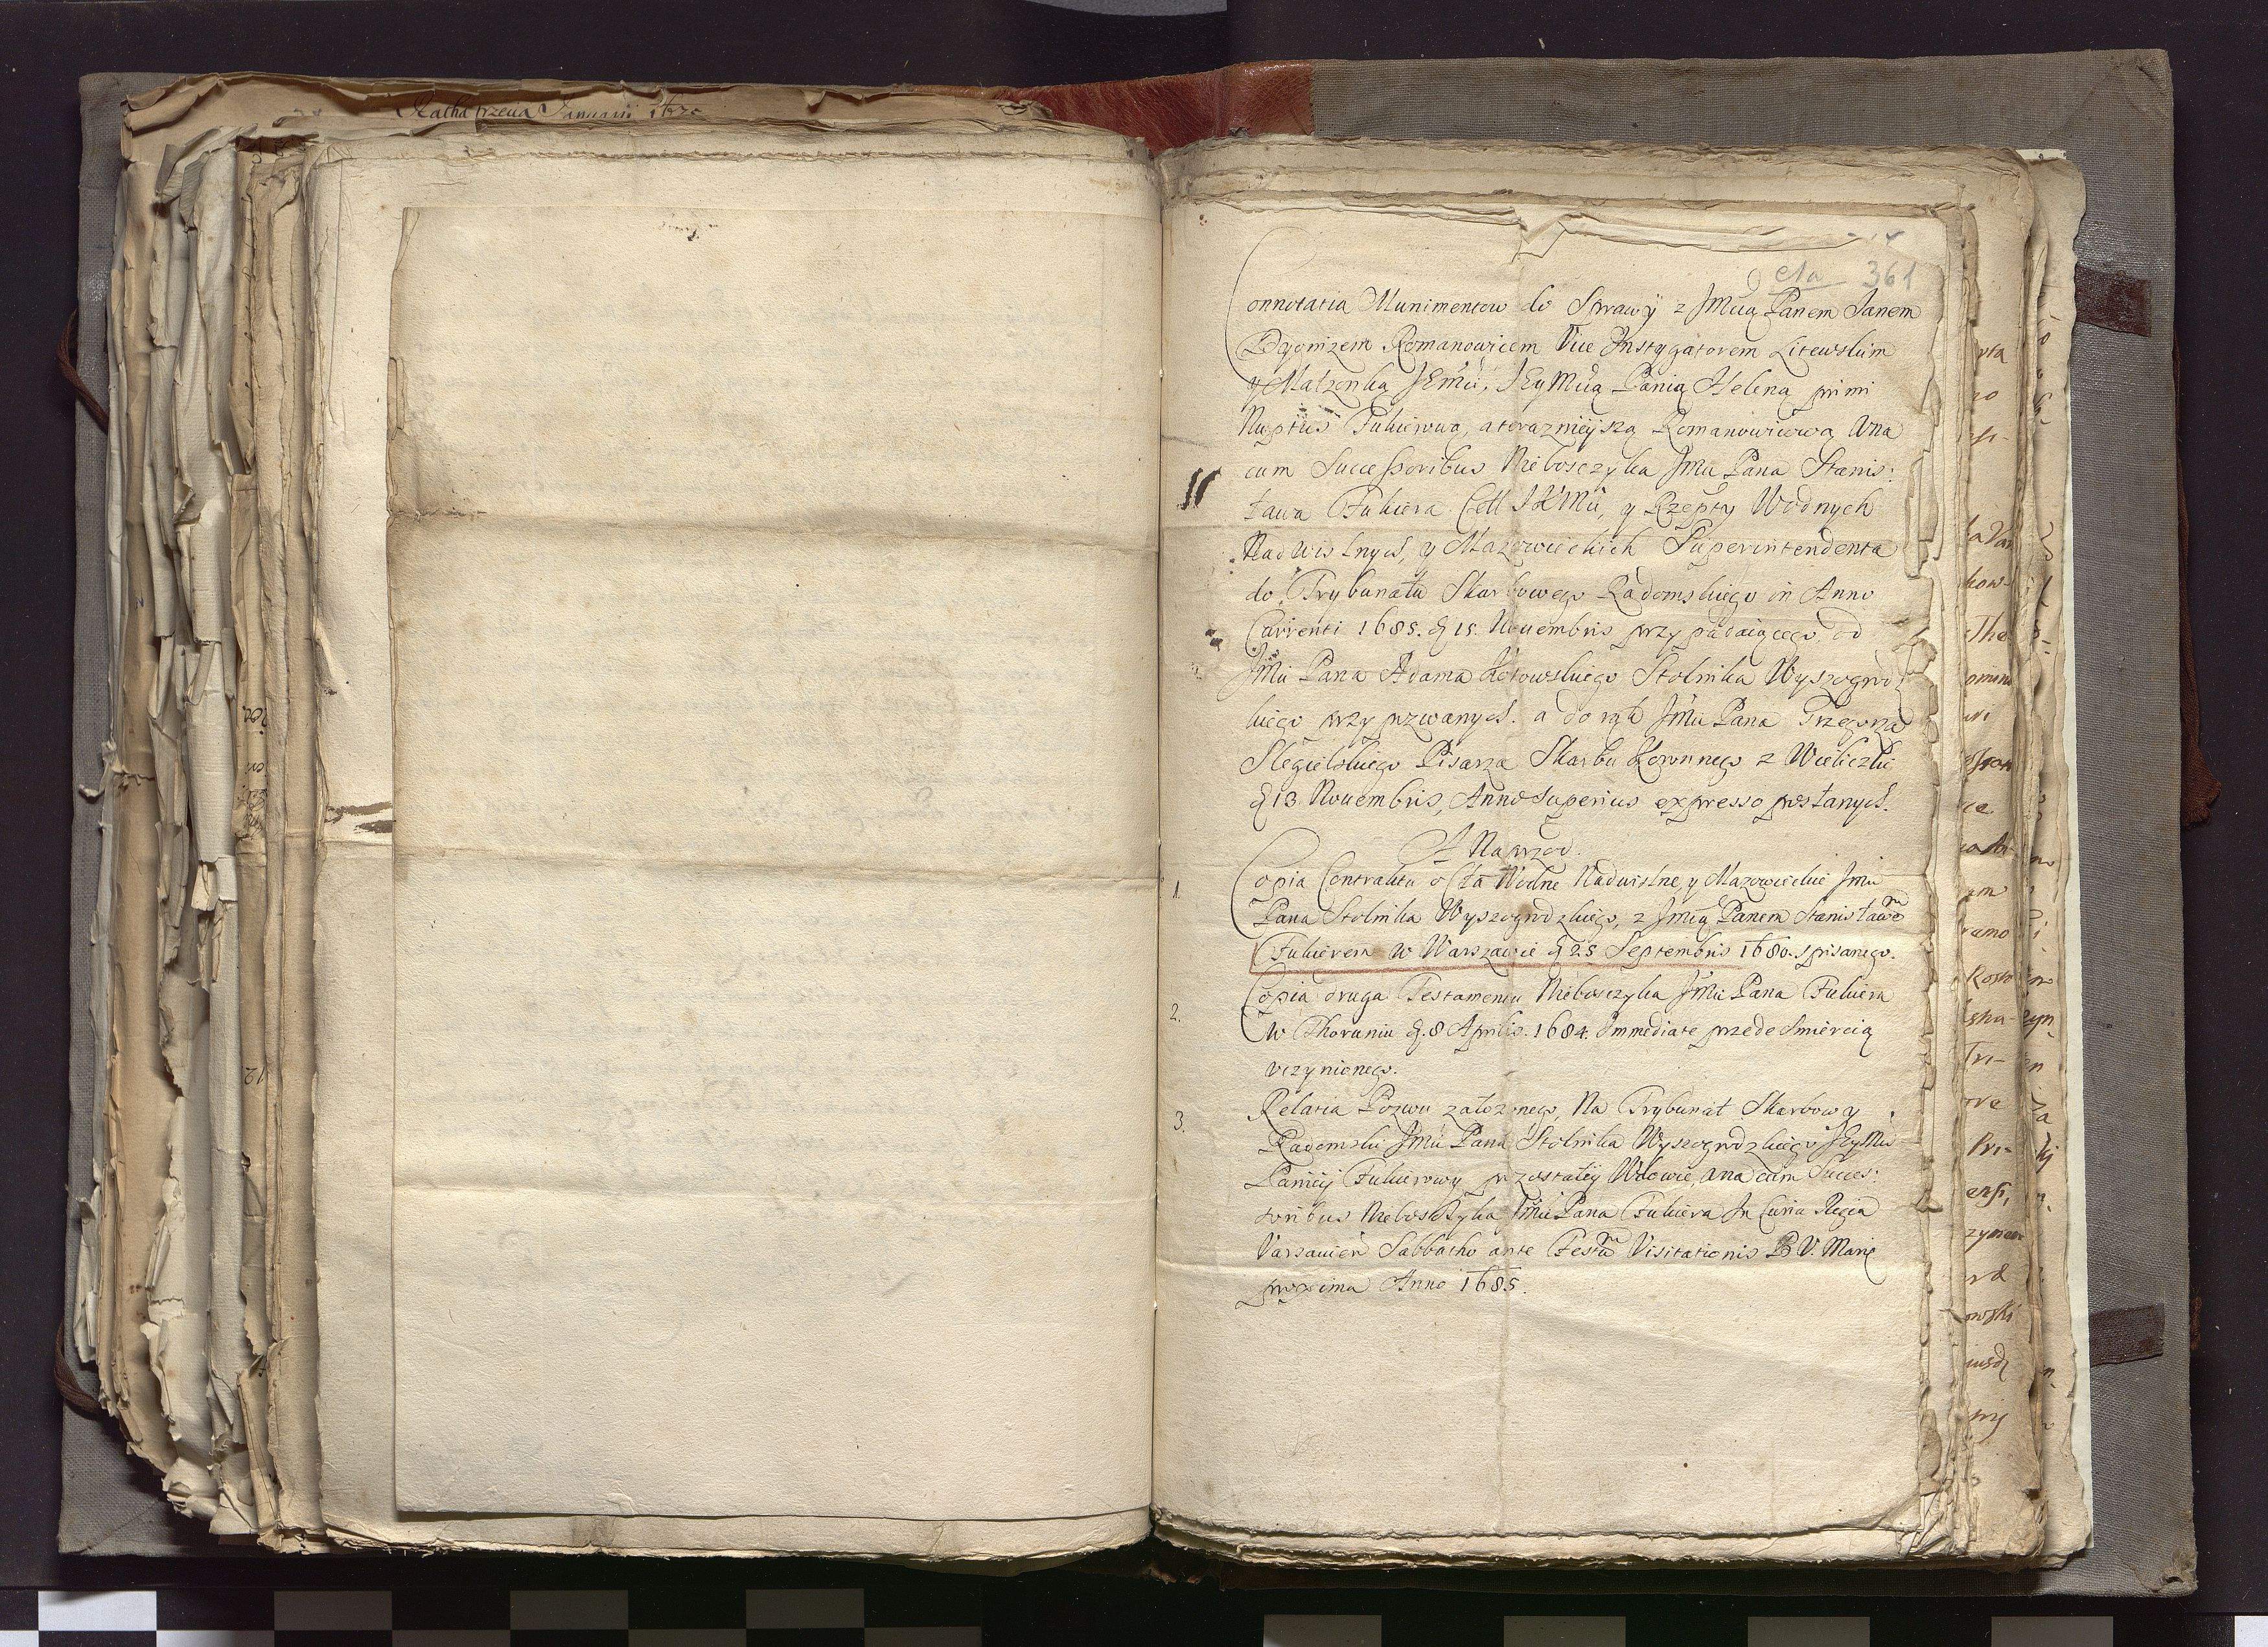 Ratha trzecia Januarij
cła 361
Connotatia Munimentow do Sprawy z JMcią Panem Janem
Dyonizem Romanowicem Vice Instygatorem Litewskim
y Małzonką JEMci, JEyMcią Panią Heleną primi
Nuptus Fukierową, a terazniejszą Romanowicową Vna
cum Successoribus Nieboszczyka JMci Pana Stanis:
ława Fukiera Cełł JKMci, y Rzepty Wodnych
Nadwislnych, y Mazowieckich Superintendenta
do Trybunału Skarbowego Radomskiego in Anno
Currenti 1685. d 15. Nouembris przypadaiącego, od
JMci Pana Adama Kotowskiego Stolnika Wyszogrodz
kiego przypozwanych. a do rąk JMci Pana Grzegorza
Slegielskiego Pisarza Skarbu Koronnego z Wieliczki
d 13 Nouembris, Anno superius expresso posłanych.
A Naprzod.
1. Copia Contraktu o Cła Wodne Nadwislne, y Mazowieckie Jmci
Pana Stolnika Wyszogrodzkiego, z Jmcią Panem Stanisławem
Fukierem w Warszawie d 25 Septembris 1680. spisanego.
2. Copia druga Testamentu Nieboszczyka JMci Pana Fukiera
w Thoruniu d. 8 Aprilis. 1684. Immediate przede Smiercią
vczynionego.
3. Relatia Pozwu załozonego, Na Trybunał Skarbowy
Radomski JMci Pana Stolnika Wyszogrodzkiego JEyMci
Paniey Fukierowy pozostałey Wdowie, vna cum Succes:
soribus Nieboszczyka JMci Pana Fukiera In Curia Regia
Varsauien Sabbatho ante Festum Visitationis B V. Mariæ
proxima Anno 1685.